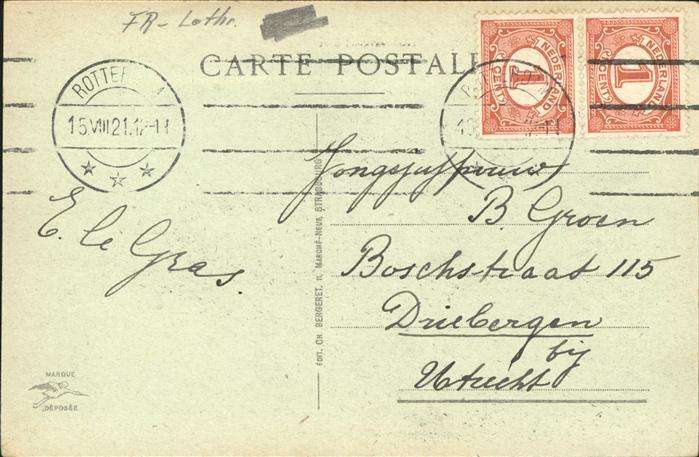 FR - Lothr.
CARTE POSTALE
ROTTERDAM
15.VIII21.12-1
NEDERLAND
1
CENT
NEDERLAND
1
CENT
E. le Gras.
B. Groen
Boschstraat 115
Driebergen
bij
Utrecht
EDIT. CH. BERGERET, MARCHÉ-NEUF, STRASBOURG
MARQUE
DÉPOSÉE